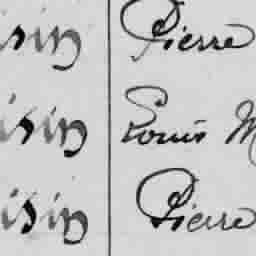 isin Pierre
isin Louis M
isin Pierre